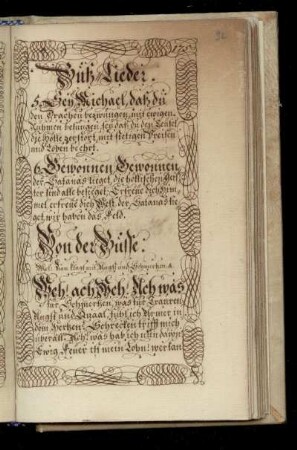 Büß-Lieder.
5. Sey Michael, daß du
den Drachen bezwungen, mit ewigen
Ruhmen besungen, sey daß du den Teufel
die Hölle zerstört, mit stetigen Preißen
und Loben beehrt.
6. Gewonnen Gewonnen
der Satanas lieget, die höllischen Gei-
ster send alle besieget, Erfreue dich Him-
mel erfreue dich Welt, der Satanas lie
get, wir haben das Feld.
Von der Büsse.
Weh, ach Weh! Ach was
für Schmerzen, was für Trauren
Angst und Quaal, fühl ich die mer in
dem Herzen! Schrecken trifft mich
überall. Ach! was hab ich nun davon
Ewig Feuer ist mein Lohn! wer kan